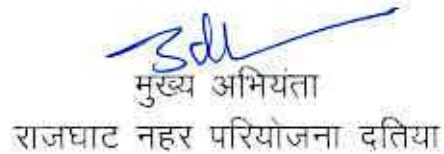 मुख्य अभियंता
राजघाट नहर परियोजना दतिया